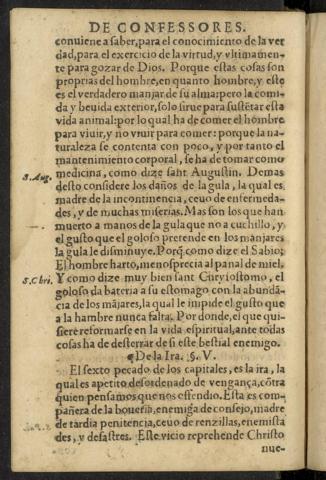 DE CONFESSORES.
conuiene a saber, para el conocimiento de la ver
dad, para el exercicio de la virtud, y vltimamen-
te para gozar de Dios. Porque estas cosas son
proprias del hombre, en quanto hombre, y este
es el verdadero manjar de su alma: pero la comi-
da y beuida exterior, solo sirue para sustẽtar esta
vida animal: por lo qual ha de comer el hombre
para viuir, y no viuir para comer: porque la na-
turaleza se contenta con poco, y por tanto el
mantenimiento corporal, se ha de tomar como
S. Aug. medicina, como dize sant Augustin. Demas
desto considere los daños de la gula, la qual es
madre de la incontinencia, ceuo de enfermeda-
des, y de muchas miserias. Mas son los que han
muerto a manos de la gula que no a cuchillo, y
el gusto que el goloso pretende en los manjares
la gula le disminuye. Porq̃ como dize el Sabio:
El hombre harto, menosprecia al panal de miel.
S. Chri. Y como dize muy bien sant Chrysostomo, el
goloso da bateria a su estomago con la abundã-
cia de los mãjares, la qual le impide el gusto que
a la hambre nunca falta. Por donde, el que qui-
siere reformarse en la vida espiritual, ante todas
cosas ha de desterrar de si este bestial enemigo.
¶ De la Ira. §. V.
El sexto pecado de los capitales, es la ira, la
qual es apetito desordenado de vengança, cõtra
quien pensamos que nos offendio. Esta es com-
pañera de la boueria, enemiga de consejo, madre
de tardia penitencia, ceuo de renzillas, enemista
des, y desastres. Este vicio reprehende Christo
nue-